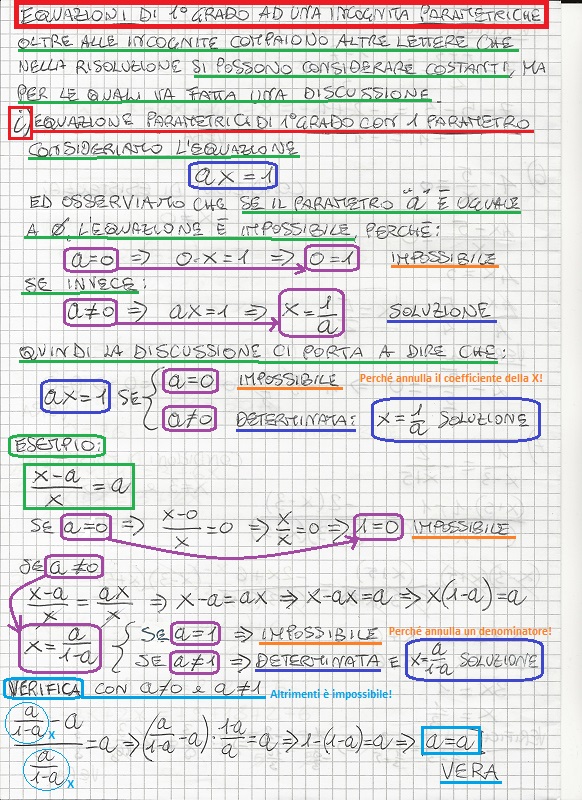 EQUAZIONI DI 1° GRADO AD UNA INCOGNITA PARAMETRICHE
OLTRE ALLE INCOGNITE COMPAIONO ALTRE LETTERE CHE
NELLA RISOLUZIONE SI POSSONO CONSIDERARE COSTANTI, MA
PER LE QUALI VA FATTA UNA DISCUSSIONE.
i) EQUAZIONE PARAMETRICA DI 1° GRADO CON 1 PARAMETRO
CONSIDERIAMO L'EQUAZIONE
ax = 1
ED OSSERVIAMO CHE SE IL PARAMETRO "a" È UGUALE
A 0, L'EQUAZIONE È IMPOSSIBILE, PERCHÉ:
a=0 ⇒ 0·x=1 ⇒ 0=1 IMPOSSIBILE
SE INVECE:
a≠0 ⇒ ax=1 ⇒ x=1/a SOLUZIONE
QUINDI LA DISCUSSIONE CI PORTA A DIRE CHE:
ax=1 SE { a=0 IMPOSSIBILE Perché annulla il coefficiente della X!
a≠0 DETERMINATA: x=1/a SOLUZIONE
ESEMPIO:
(x-a)/x = a
SE a=0 ⇒ (x-0)/x=0 ⇒ x/x=0 ⇒ 1=0 IMPOSSIBILE
SE a≠0
(x-a)/x = ax/x ⇒ x-a=ax ⇒ x-ax=a ⇒ x(1-a)=a
x=a/(1-a) { SE a=1 ⇒ IMPOSSIBILE Perché annulla un denominatore!
SE a≠1 ⇒ DETERMINATA E x=a/(1-a) SOLUZIONE
VERIFICA CON a≠0 e a≠1 Altrimenti è impossibile!
(a/(1-a) x - a)/(a/(1-a) x) = a ⇒ (a/(1-a) - a)·(1-a)/a = a ⇒ 1-(1-a)=a ⇒ a=a
VERA